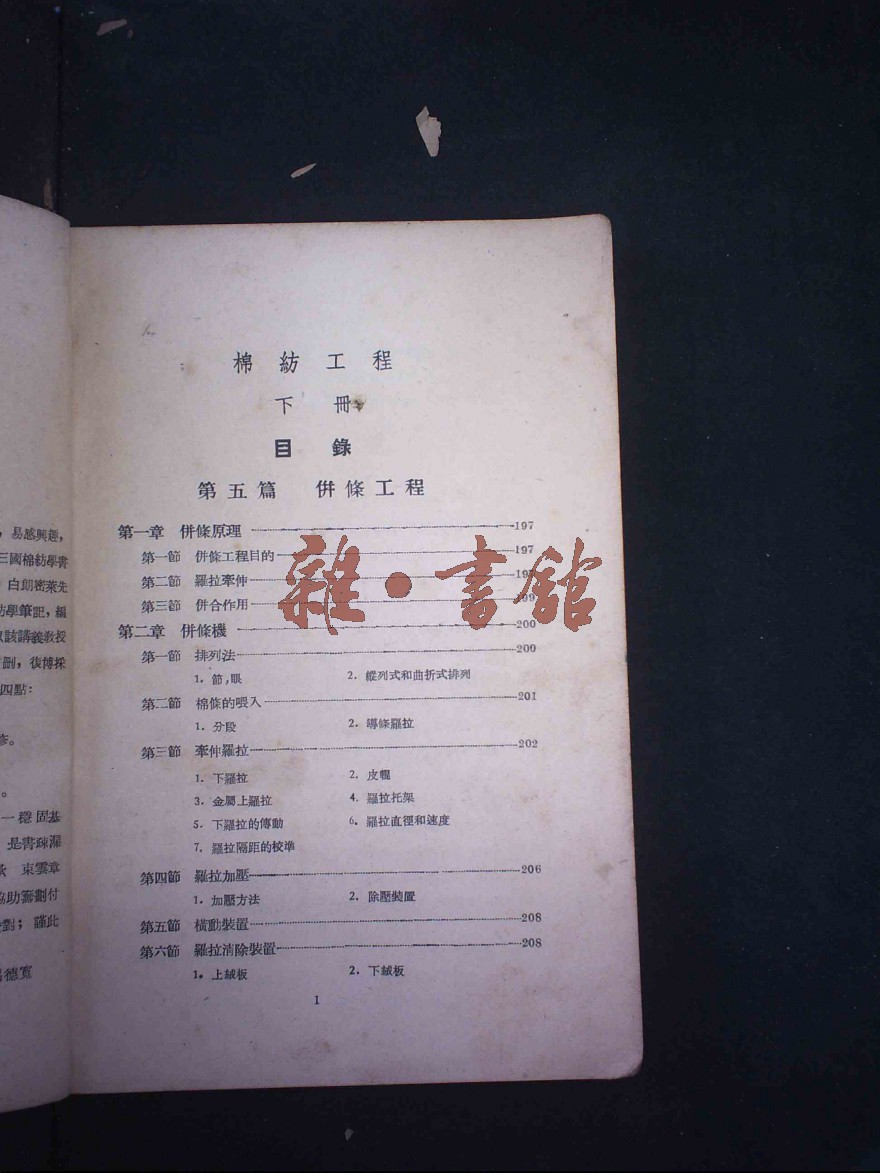 ，易感興趣，
三國棉紡學書
白朗密萊先
紡學筆記，編
以該講義教授
刪，後博採
四點：
修。
。
一穩固基
是書疎漏
欵 東雲章
協助籌劃付
校對；謹此
德寬
棉紡工程
下冊
目錄
第五篇 併條工程
第一章 併條原理 197
第一節 併條工程目的 197
第二節 羅拉牽伸
第三節 併合作用 199
第二章 併條機 200
第一節 排列法 200
1．節，眼 2．縱列式和曲折式排列
第二節 棉條的喂入 201
1．分段 2．導條羅拉
第三節 牽伸羅拉 202
1．下羅拉 2．皮輥
3．金屬上羅拉 4．羅拉托架
5．下羅拉的傳動 6．羅拉直徑和速度
7．羅拉隔距的校準
第四節 羅拉加壓 206
1．加壓方法 2．除壓裝置
第五節 橫動裝置 208
第六節 羅拉清除裝置 208
1．上絨板 2．下絨板
1
雜·書館